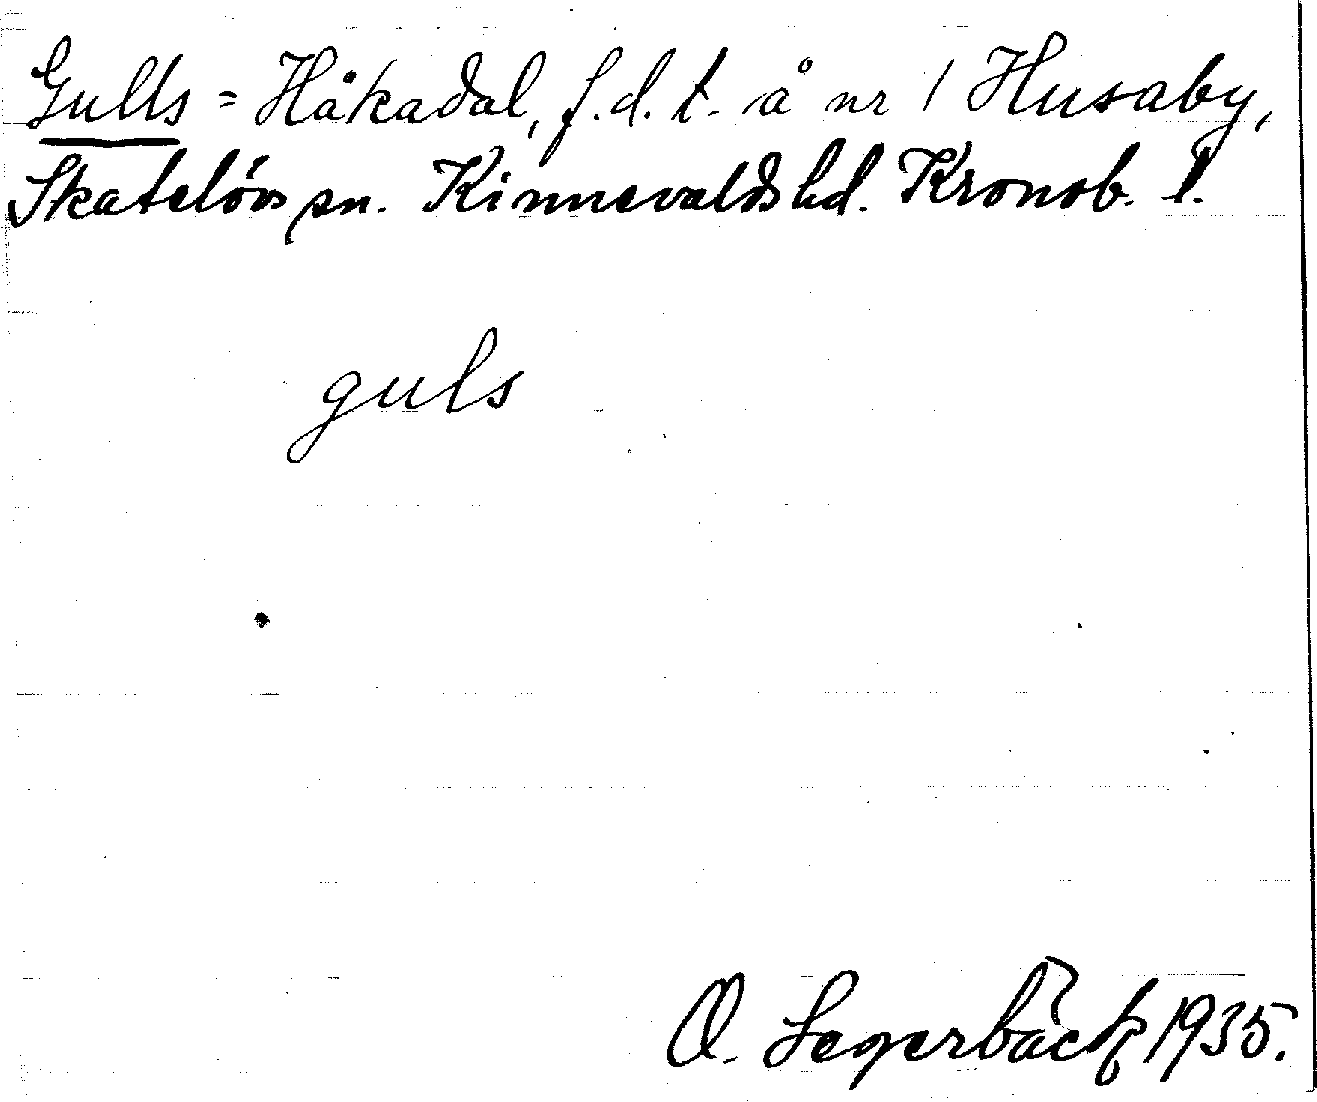 Gulls = Håkadal, f.d.t. å nr 1 Husaby,
Skatelövs sn. Kinnevalds hd. Kronob. l.
guls
O. Segerbäck 1935.